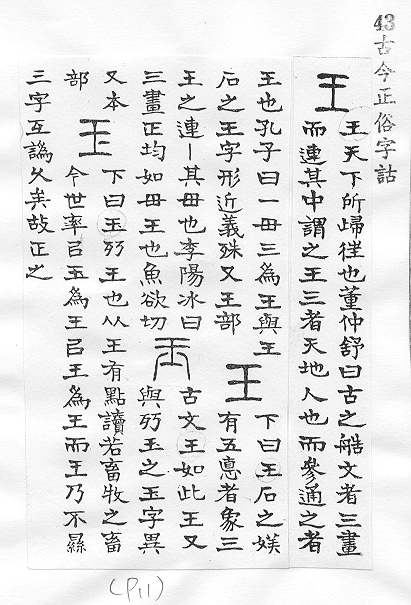 43古今正俗字詁
王
王天下所歸徃也董仲舒曰古之艁文者三畫
而連其中謂之王三者天地人也而參通之者
王也孔子曰一毌三為王與王
石之王字形近義殊又王部
王
下曰王石之媄
有五悳者象三
王之連丨其毌也李陽冰曰
三畫正均如毌王也魚欲切
𤣪
古文王如此王又
與㱙玉之玉字異
又本
部
玊
下曰玊㱙王也从王有點讀若畜牧之畜
今世率㠯玉為王㠯王為王而王乃不㬎
三字互譌久矣故正之
(P11)